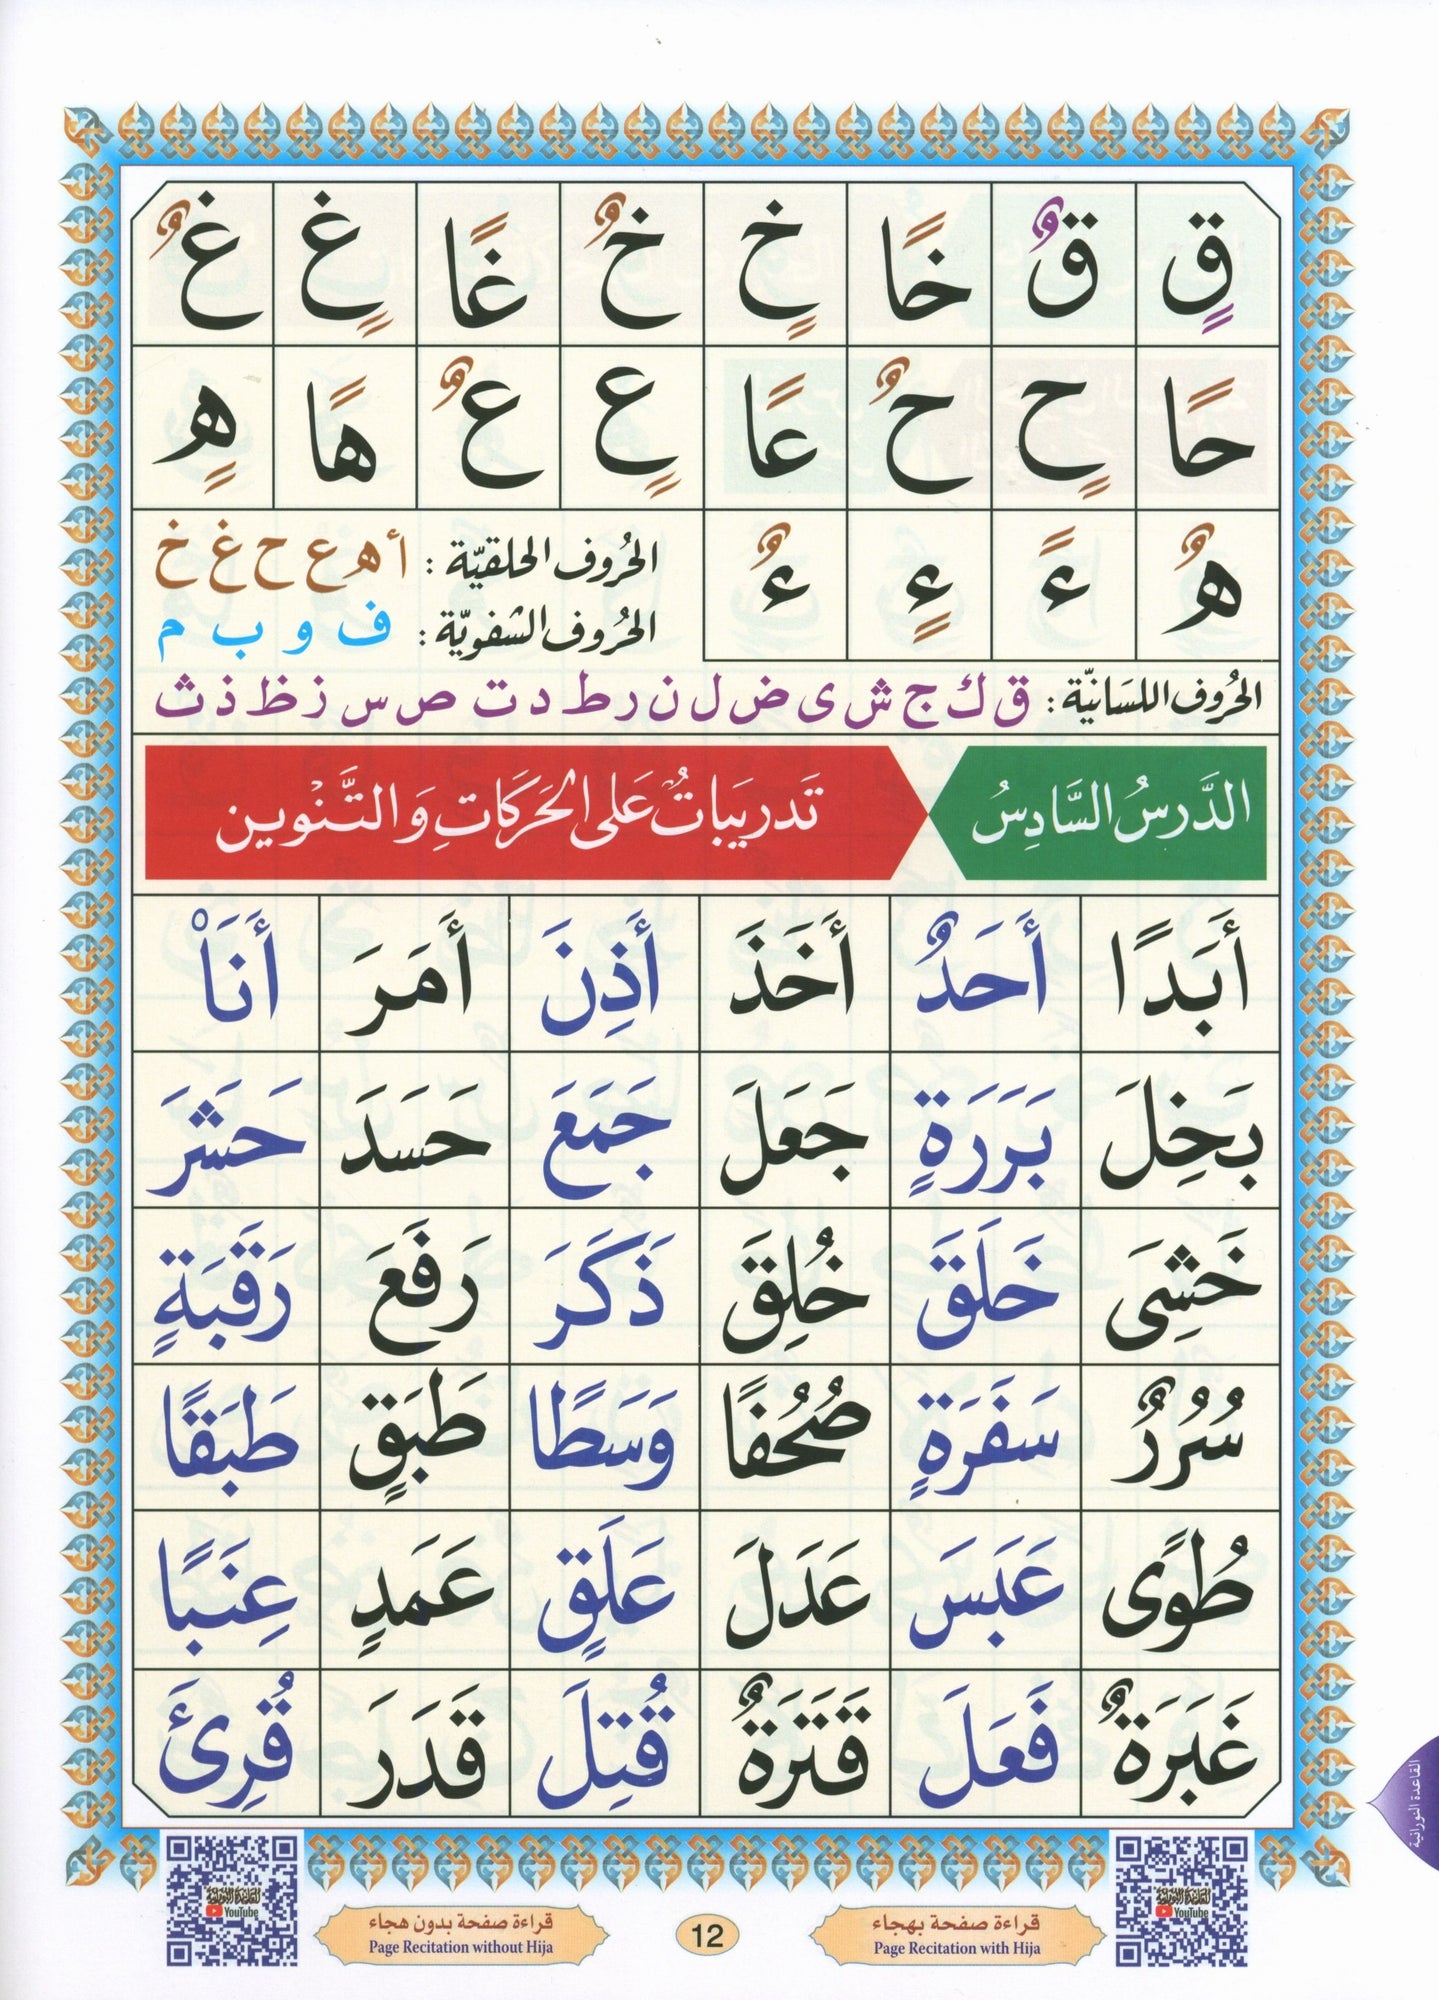 قٍ قٌ خًا خٍ خٌ غًا غٍ غٌ
حًا حٍ حٌ عًا عٍ عٌ هًا هٍ
هٌ ءً ءٍ ءٌ
الحُروف الحلقيّة : أ ه ع ح غ خ
الحُروف الشفويّة : ف و ب م
الحُروف اللسَانيّة : ق ك ج ش ى ض ل ن ر ط د ت ص س ز ظ ذ ث
الدَّرسُ السَّادِسُ تَدريبَاتٌ عَلى الحَرَكَاتِ وَالتَّنْوين
أَبَدًا أَحَدٌ أَخَذَ أَذِنَ أَمَرَ أَنَاْ
بَخِلَ بَرَرَةٍ جَعَلَ جَمَعَ حَسَدَ حَشَرَ
خَشِىَ خَلَقَ خُلِقَ ذَكَرَ رَفَعَ رَقَبَةٍ
سُرُرٌ سَفَرَةٍ صُحُفًا وَسَطًا طَبَقٍ طَبَقًا
طُوًى عَبَسَ عَدَلَ عَلَقٍ عَمَدٍ عِنَبًا
غَبَرَةٌ فَعَلَ قَتَرَةٌ قُتِلَ قَدَرَ قُرِئَ
القاعدة النورانية
القاعدة النورانية
YouTube
قراءة صفحة بهجاء
Page Recitation with Hija
12
قراءة صفحة بدون هجاء
Page Recitation without Hija
القاعدة النورانية
YouTube